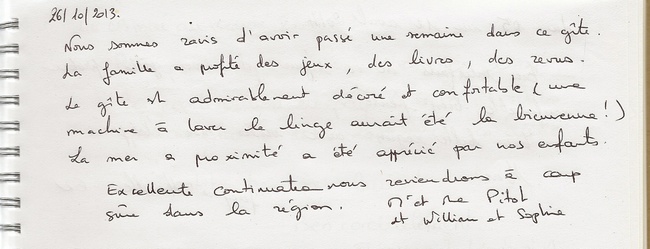 26/10/2013.
Nous sommes ravis d'avoir passé une semaine dans ce gîte.
La famille a profité des jeux, des livres, des revus.
Le gîte est admirablement décoré et confortable (une
machine à laver le linge aurait été la bienvenue !)
La mer a proximité a été apprécié par nos enfants.
Excellente continuation nous reviendrons à coup
sûre dans la région. Mr et Me Pitol
et William et Sophie